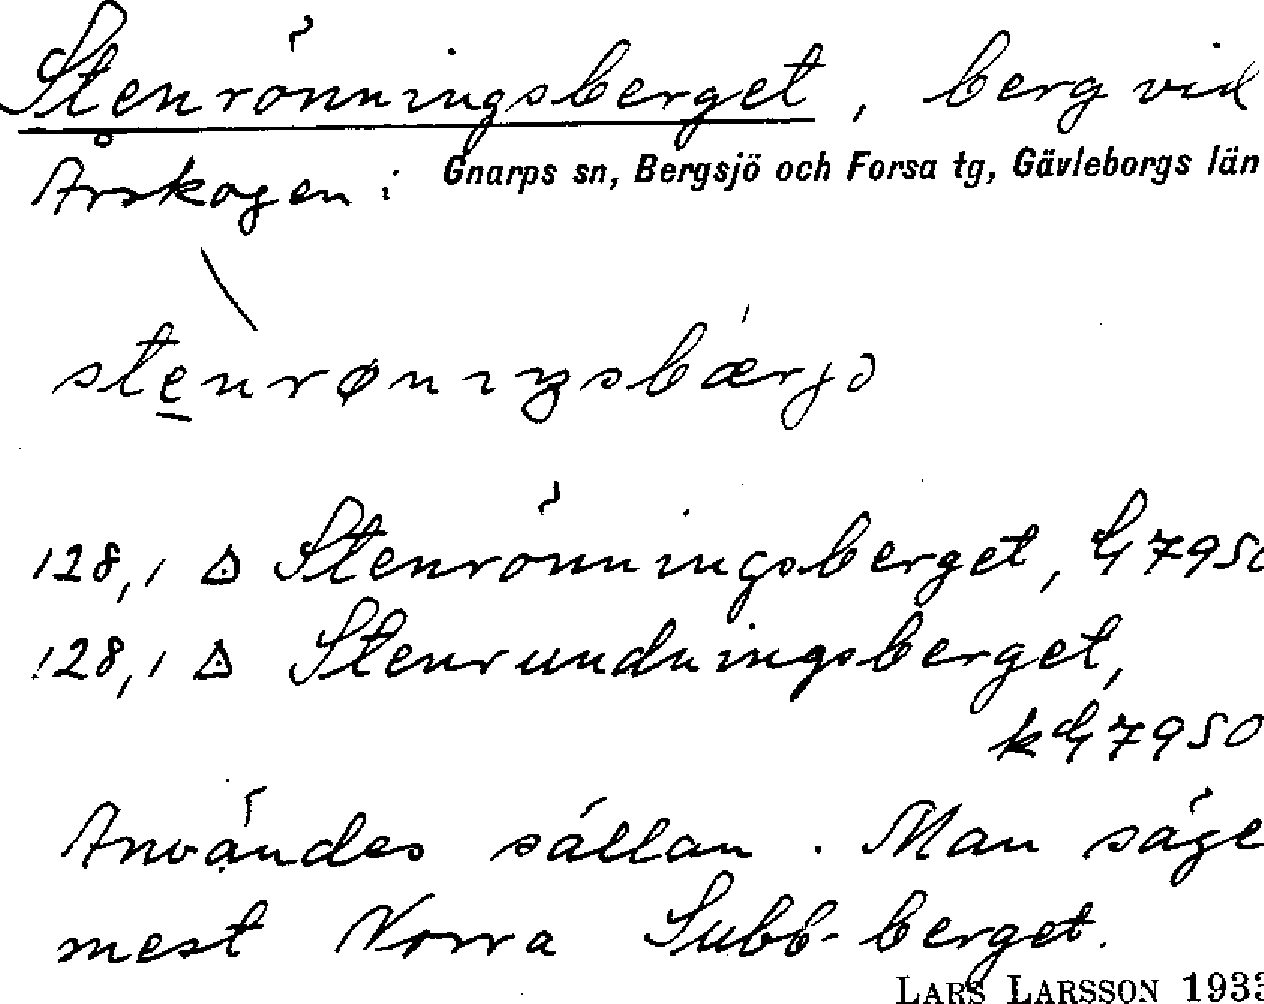 Stenrönningsberget, berg vid
Årskogen: Gnarps sn, Bergsjö och Forsa tg, Gävleborgs län
stenrønıŋsbærjə
128,1 △ Stenrönningsberget, G 7950
128,1 △ Stenrundningsberget,
kG 7950
Användes sällan. Man säge
mest Norra Subb-berget.
LARS LARSSON 1933